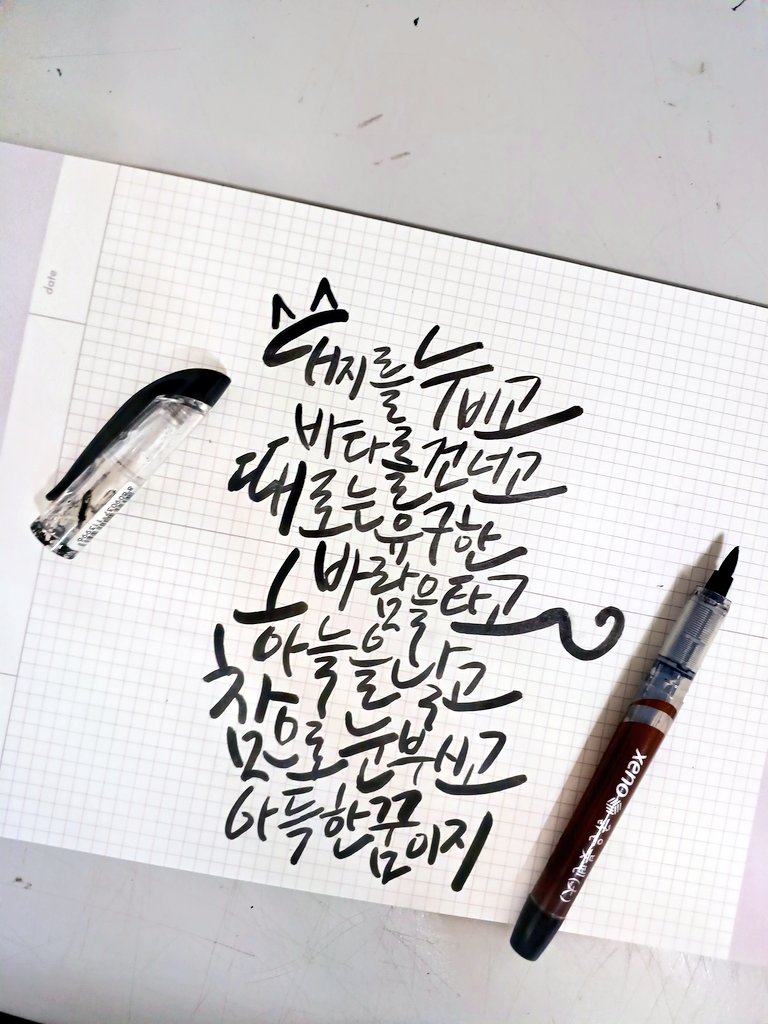 대지를 누비고
바다를 건너고
때로는 유구한
바람을 타고
하늘을 날고
참으로 눈부시고
아득한 꿈이지
date
xeno
붓펜(大)